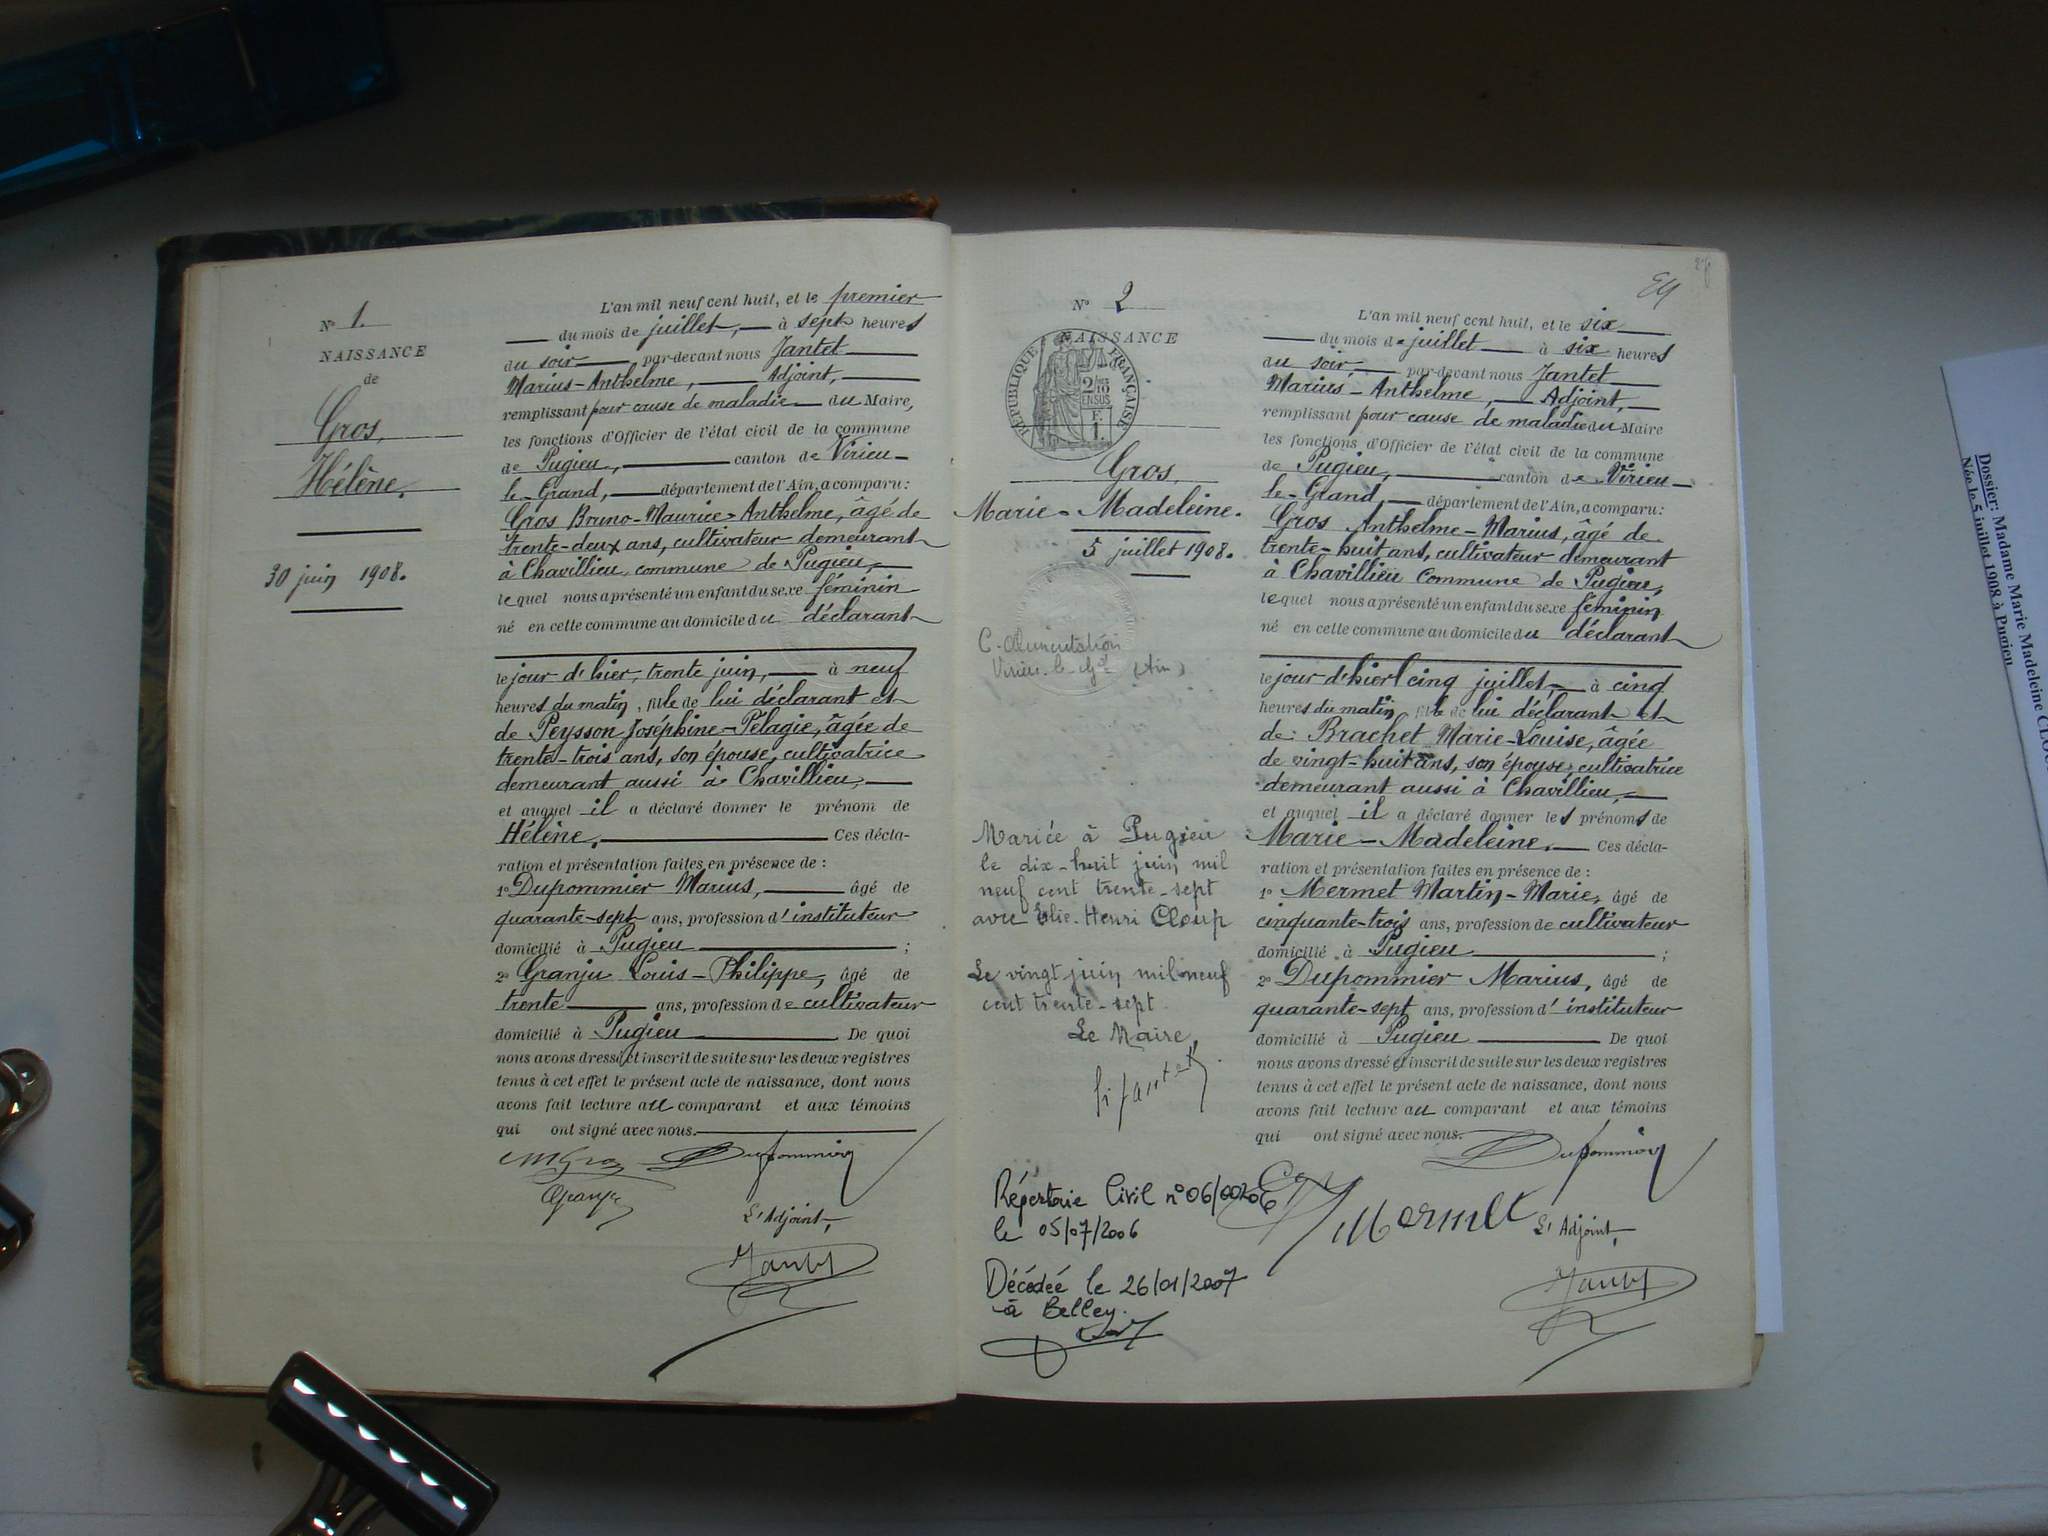 N° 1.
NAISSANCE
de
Gros,
Hélène.
30 juin 1908.
L'an mil neuf cent huit, et le premier
du mois de juillet, à sept heures
du soir, par-devant nous Jantet
Marius-Anthelme, Adjoint,
remplissant pour cause de maladie du Maire,
les fonctions d'Officier de l'état civil de la commune
de Pugieu, canton de Virieu-
le-Grand, département de l'Ain, a comparu :
Gros Bruno-Maurice-Anthelme, âgé de
trente-deux ans, cultivateur demeurant
à Chavillieu commune de Pugieu,
lequel nous a présenté un enfant du sexe féminin
né en cette commune au domicile du déclarant
le jour d'hier, trente juin, à neuf
heures du matin, fille de lui déclarant et
de Peysson Joséphine-Pélagie, âgée de
trente-trois ans, son épouse, cultivatrice
demeurant aussi à Chavillieu,
et auquel il a déclaré donner le prénom de
Hélène. Ces décla-
ration et présentation faites en présence de :
1° Dupommier Marius, âgé de
quarante-sept ans, profession d'instituteur
domicilié à Pugieu ;
2° Granju Louis-Philippe, âgé de
trente ans, profession de cultivateur
domicilié à Pugieu De quoi
nous avons dressé et inscrit de suite sur les deux registres
tenus à cet effet le présent acte de naissance, dont nous
avons fait lecture au comparant et aux témoins
qui ont signé avec nous.
Gros Dupommier
Granju
L'Adjoint,
Jantet
N° 2
NAISSANCE
RÉPUBLIQUE FRANÇAISE
2/10
EN SUS
Gros,
Marie-Madeleine.
5 juillet 1908.
C. Alimentation
Virieu-le-Gd (Ain)
Mariée à Pugieu
le dix-huit juin mil
neuf cent trente-sept
avec Elie-Henri Cloup
Le vingt juin mil neuf
cent trente-sept
Le Maire,
Répertoire Civil n° 06/00206
le 05/07/2006
Décédée le 26/01/2007
à Belley.
L'an mil neuf cent huit, et le six
du mois de juillet à six heures
du soir, par-devant nous Jantet
Marius-Anthelme, Adjoint,
remplissant pour cause de maladie du Maire
les fonctions d'Officier de l'état civil de la commune
de Pugieu, canton de Virieu-
le-Grand, département de l'Ain, a comparu :
Gros Anthelme-Marius, âgé de
trente-huit ans, cultivateur demeurant
à Chavillieu commune de Pugieu,
lequel nous a présenté un enfant du sexe féminin
né en cette commune au domicile du déclarant
le jour d'hier cinq juillet à cinq
heures du matin, fille de lui déclarant et
de Brachet Marie-Louise, âgée
de vingt-huit ans, son épouse, cultivatrice
demeurant aussi à Chavillieu,
et auquel il a déclaré donner les prénoms de
Marie-Madeleine. Ces décla-
ration et présentation faites en présence de :
1° Mermet Martin-Marie, âgé de
cinquante-trois ans, profession de cultivateur
domicilié à Pugieu ;
2° Dupommier Marius, âgé de
quarante-sept ans, profession d'instituteur
domicilié à Pugieu De quoi
nous avons dressé et inscrit de suite sur les deux registres
tenus à cet effet le présent acte de naissance, dont nous
avons fait lecture au comparant et aux témoins
qui ont signé avec nous.
Dupommier
Mermet
L'Adjoint,
Jantet
Dossier: Madame Marie Madeleine
Née le 5 juillet 1908 à Pugieu